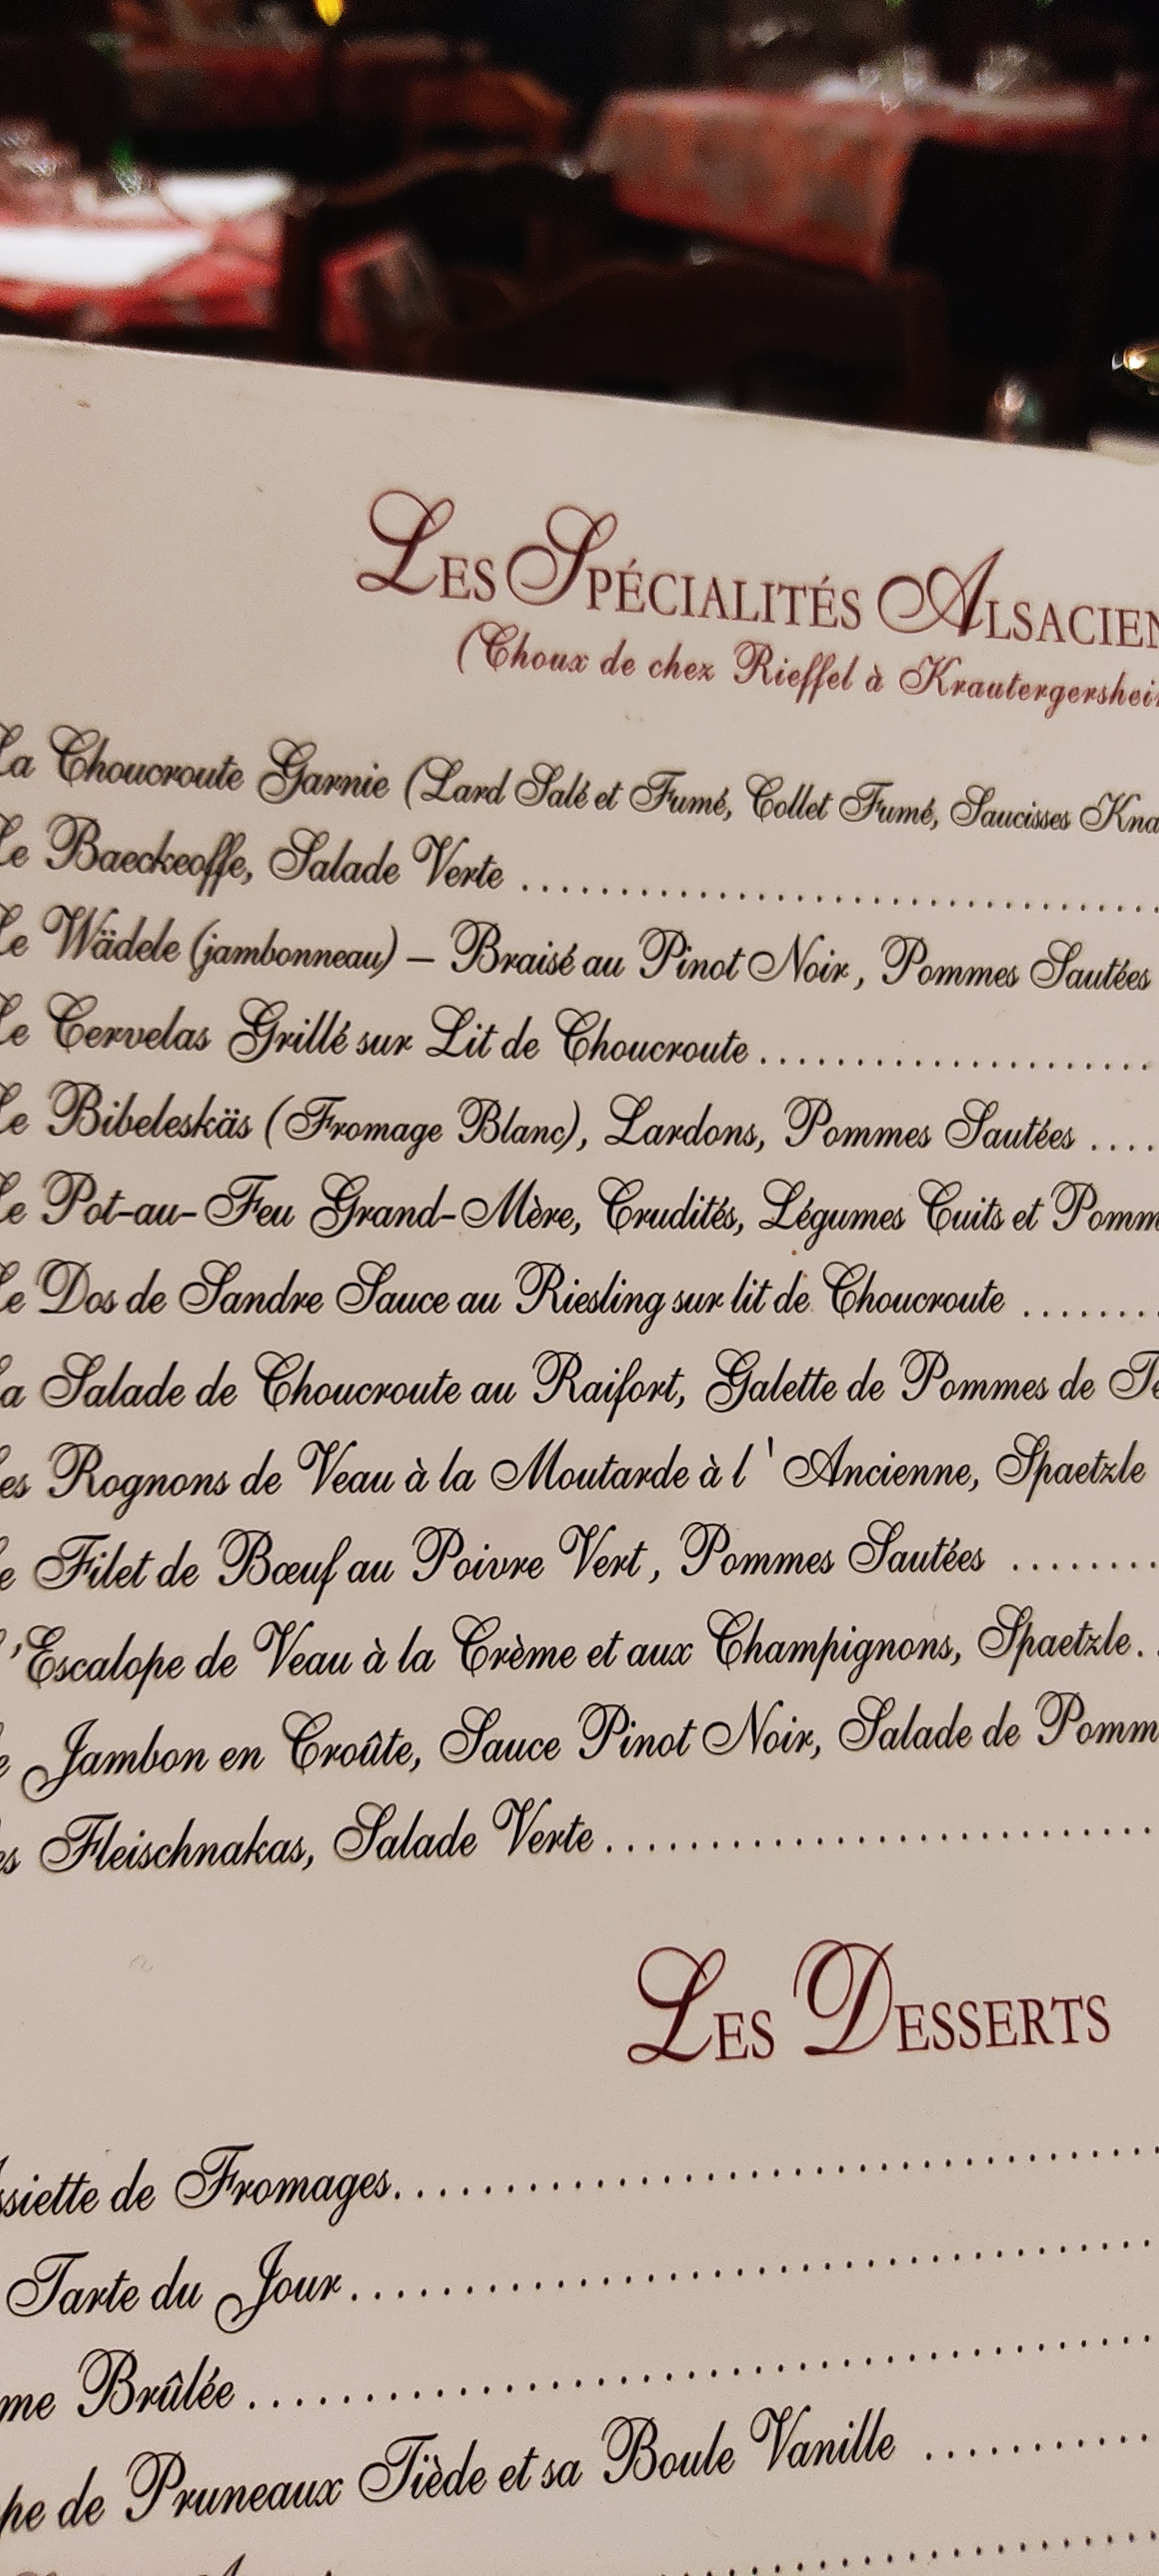 LES SPÉCIALITÉS ALSACIEN
(Choux de chez Rieffel à Krautergershei
La Choucroute Garnie (Lard Salé et Fumé, Collet Fumé, Saucisses Kna
Le Baeckeoffe, Salade Verte ..............................
Le Wädele (jambonneau) – Braisé au Pinot Noir, Pommes Sautées
Le Cervelas Grillé sur Lit de Choucroute ....................
Le Bibeleskäs (Fromage Blanc), Lardons, Pommes Sautées ....
Le Pot-au-Feu Grand-Mère, Crudités, Légumes Cuits et Pomm
Le Dos de Sandre Sauce au Riesling sur lit de Choucroute .......
a Salade de Choucroute au Raifort, Galette de Pommes de Te
es Rognons de Veau à la Moutarde à l'Ancienne, Spaetzle
e Filet de Bœuf au Poivre Vert, Pommes Sautées ........
l'Escalope de Veau à la Crème et aux Champignons, Spaetzle..
e Jambon en Croûte, Sauce Pinot Noir, Salade de Pomm
es Fleischnakas, Salade Verte ............................
LES DESSERTS
ssiette de Fromages.....................................
Tarte du Jour.......................................
me Brûlée ..........................................
pe de Pruneaux Tiède et sa Boule Vanille ...........